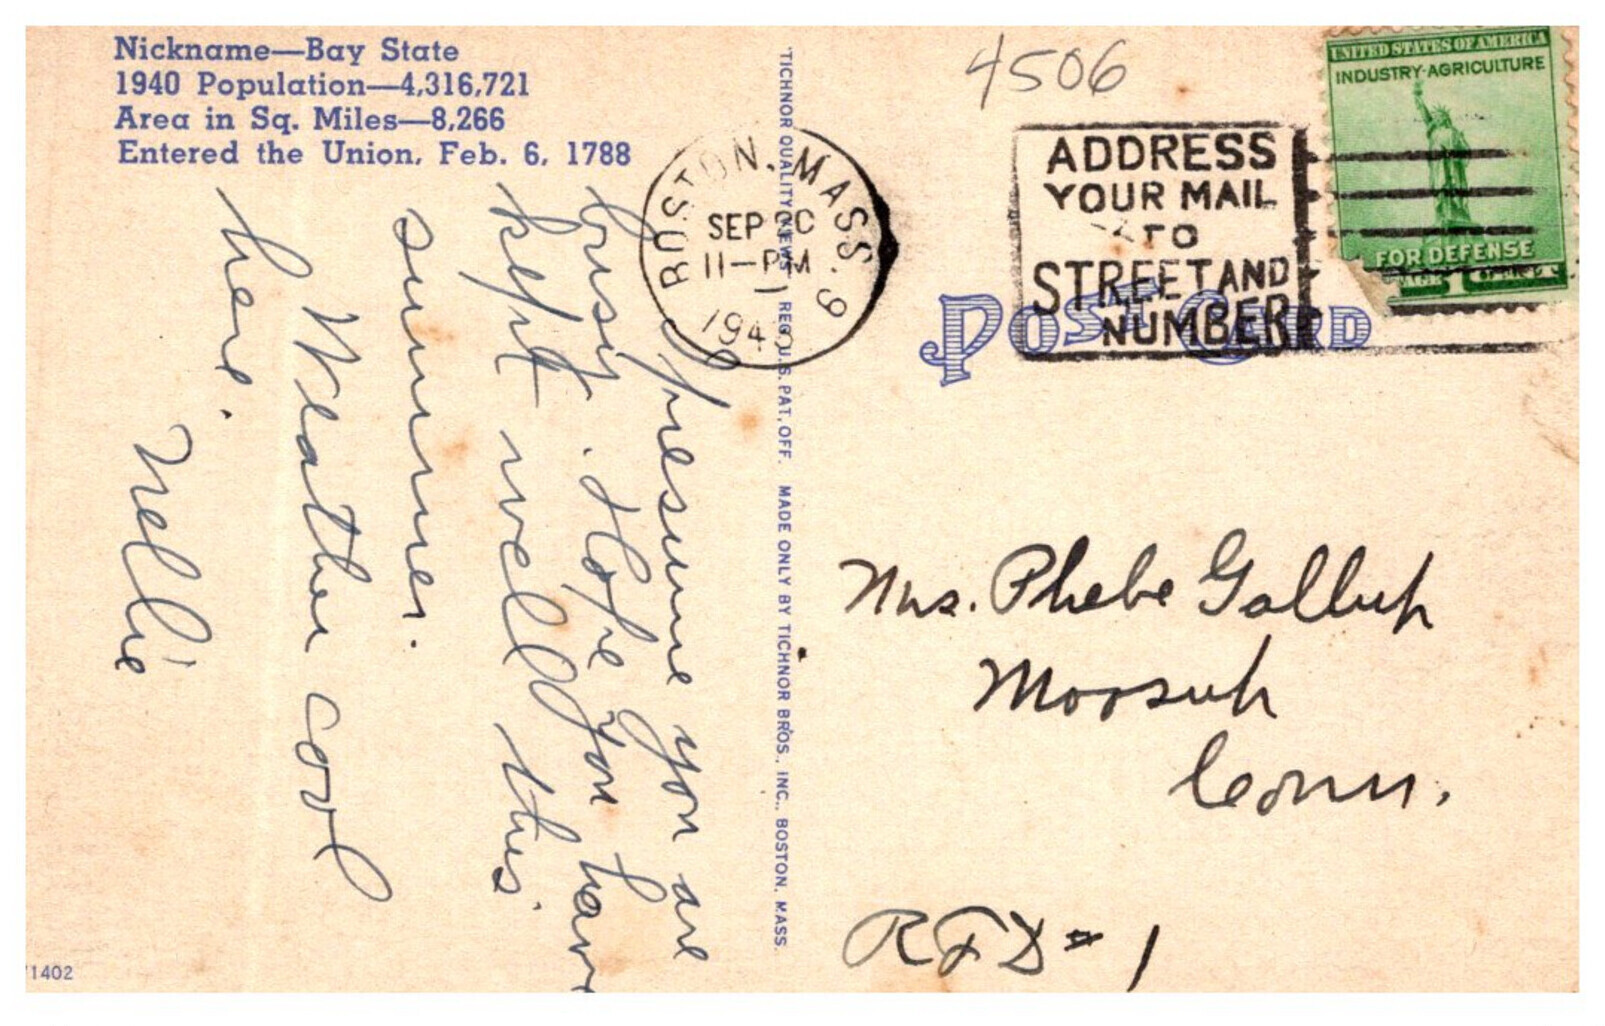 Nickname—Bay State
1940 Population—4,316,721
Area in Sq. Miles—8,266
Entered the Union, Feb. 6, 1788
I presume you are
busy. Hope you have
kept well this
summer.
Weather cool
here.
Nellie
71402
TICHNOR QUALITY VIEWS REG. U.S. PAT. OFF. MADE ONLY BY TICHNOR BROS., INC., BOSTON, MASS.
BOSTON, MASS. 9
SEP
11-PM
194
4506
ADDRESS
YOUR MAIL
TO
STREET AND
NUMBER
UNITED STATES OF AMERICA
INDUSTRY·AGRICULTURE
FOR DEFENSE
1
POST CARD
Mrs. Phebe Gallup
Moosup
Conn.
RFD #1